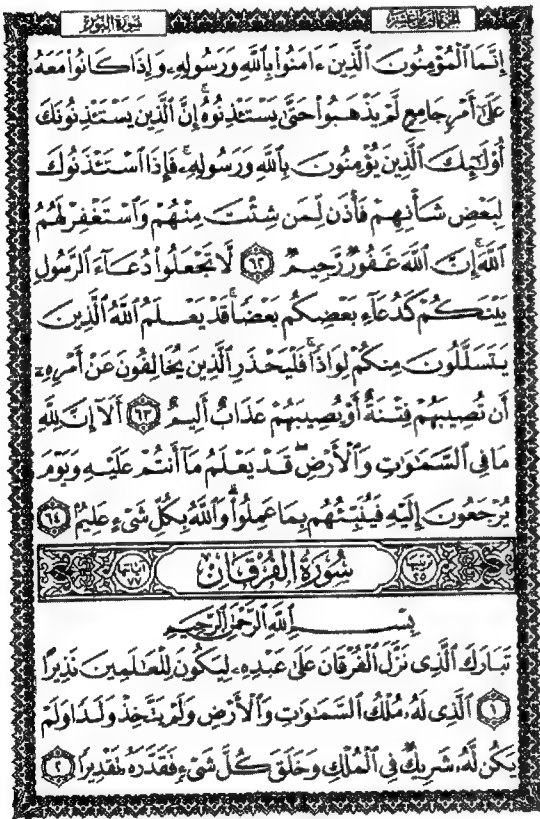 الجزء الثامن عشر
سورة النور
إِنَّمَا ٱلْمُؤْمِنُونَ ٱلَّذِينَ ءَامَنُوا۟ بِٱللَّهِ وَرَسُولِهِۦ وَإِذَا كَانُوا۟ مَعَهُۥ
عَلَىٰٓ أَمْرٍ جَامِعٍ لَّمْ يَذْهَبُوا۟ حَتَّىٰ يَسْتَـْٔذِنُوهُ ۚ إِنَّ ٱلَّذِينَ يَسْتَـْٔذِنُونَكَ
أُو۟لَـٰٓئِكَ ٱلَّذِينَ يُؤْمِنُونَ بِٱللَّهِ وَرَسُولِهِۦ ۚ فَإِذَا ٱسْتَـْٔذَنُوكَ
لِبَعْضِ شَأْنِهِمْ فَأْذَن لِّمَن شِئْتَ مِنْهُمْ وَٱسْتَغْفِرْ لَهُمُ
ٱللَّهَ ۚ إِنَّ ٱللَّهَ غَفُورٌ رَّحِيمٌ ٦٢ لَّا تَجْعَلُوا۟ دُعَآءَ ٱلرَّسُولِ
بَيْنَكُمْ كَدُعَآءِ بَعْضِكُم بَعْضًا ۚ قَدْ يَعْلَمُ ٱللَّهُ ٱلَّذِينَ
يَتَسَلَّلُونَ مِنكُمْ لِوَاذًا ۚ فَلْيَحْذَرِ ٱلَّذِينَ يُخَالِفُونَ عَنْ أَمْرِهِۦٓ
أَن تُصِيبَهُمْ فِتْنَةٌ أَوْ يُصِيبَهُمْ عَذَابٌ أَلِيمٌ ٦٣ أَلَآ إِنَّ لِلَّهِ
مَا فِى ٱلسَّمَـٰوَٰتِ وَٱلْأَرْضِ ۖ قَدْ يَعْلَمُ مَآ أَنتُمْ عَلَيْهِ وَيَوْمَ
يُرْجَعُونَ إِلَيْهِ فَيُنَبِّئُهُم بِمَا عَمِلُوا۟ ۗ وَٱللَّهُ بِكُلِّ شَىْءٍ عَلِيمٌۢ ٦٤
ترتيبها ٢٥ سُورَةُ الفُرْقَانِ آياتها ٧٧
بِسْمِ ٱللَّهِ ٱلرَّحْمَـٰنِ ٱلرَّحِيمِ
تَبَارَكَ ٱلَّذِى نَزَّلَ ٱلْفُرْقَانَ عَلَىٰ عَبْدِهِۦ لِيَكُونَ لِلْعَـٰلَمِينَ نَذِيرًا
١ ٱلَّذِى لَهُۥ مُلْكُ ٱلسَّمَـٰوَٰتِ وَٱلْأَرْضِ وَلَمْ يَتَّخِذْ وَلَدًا وَلَمْ
يَكُن لَّهُۥ شَرِيكٌ فِى ٱلْمُلْكِ وَخَلَقَ كُلَّ شَىْءٍ فَقَدَّرَهُۥ تَقْدِيرًا ٢